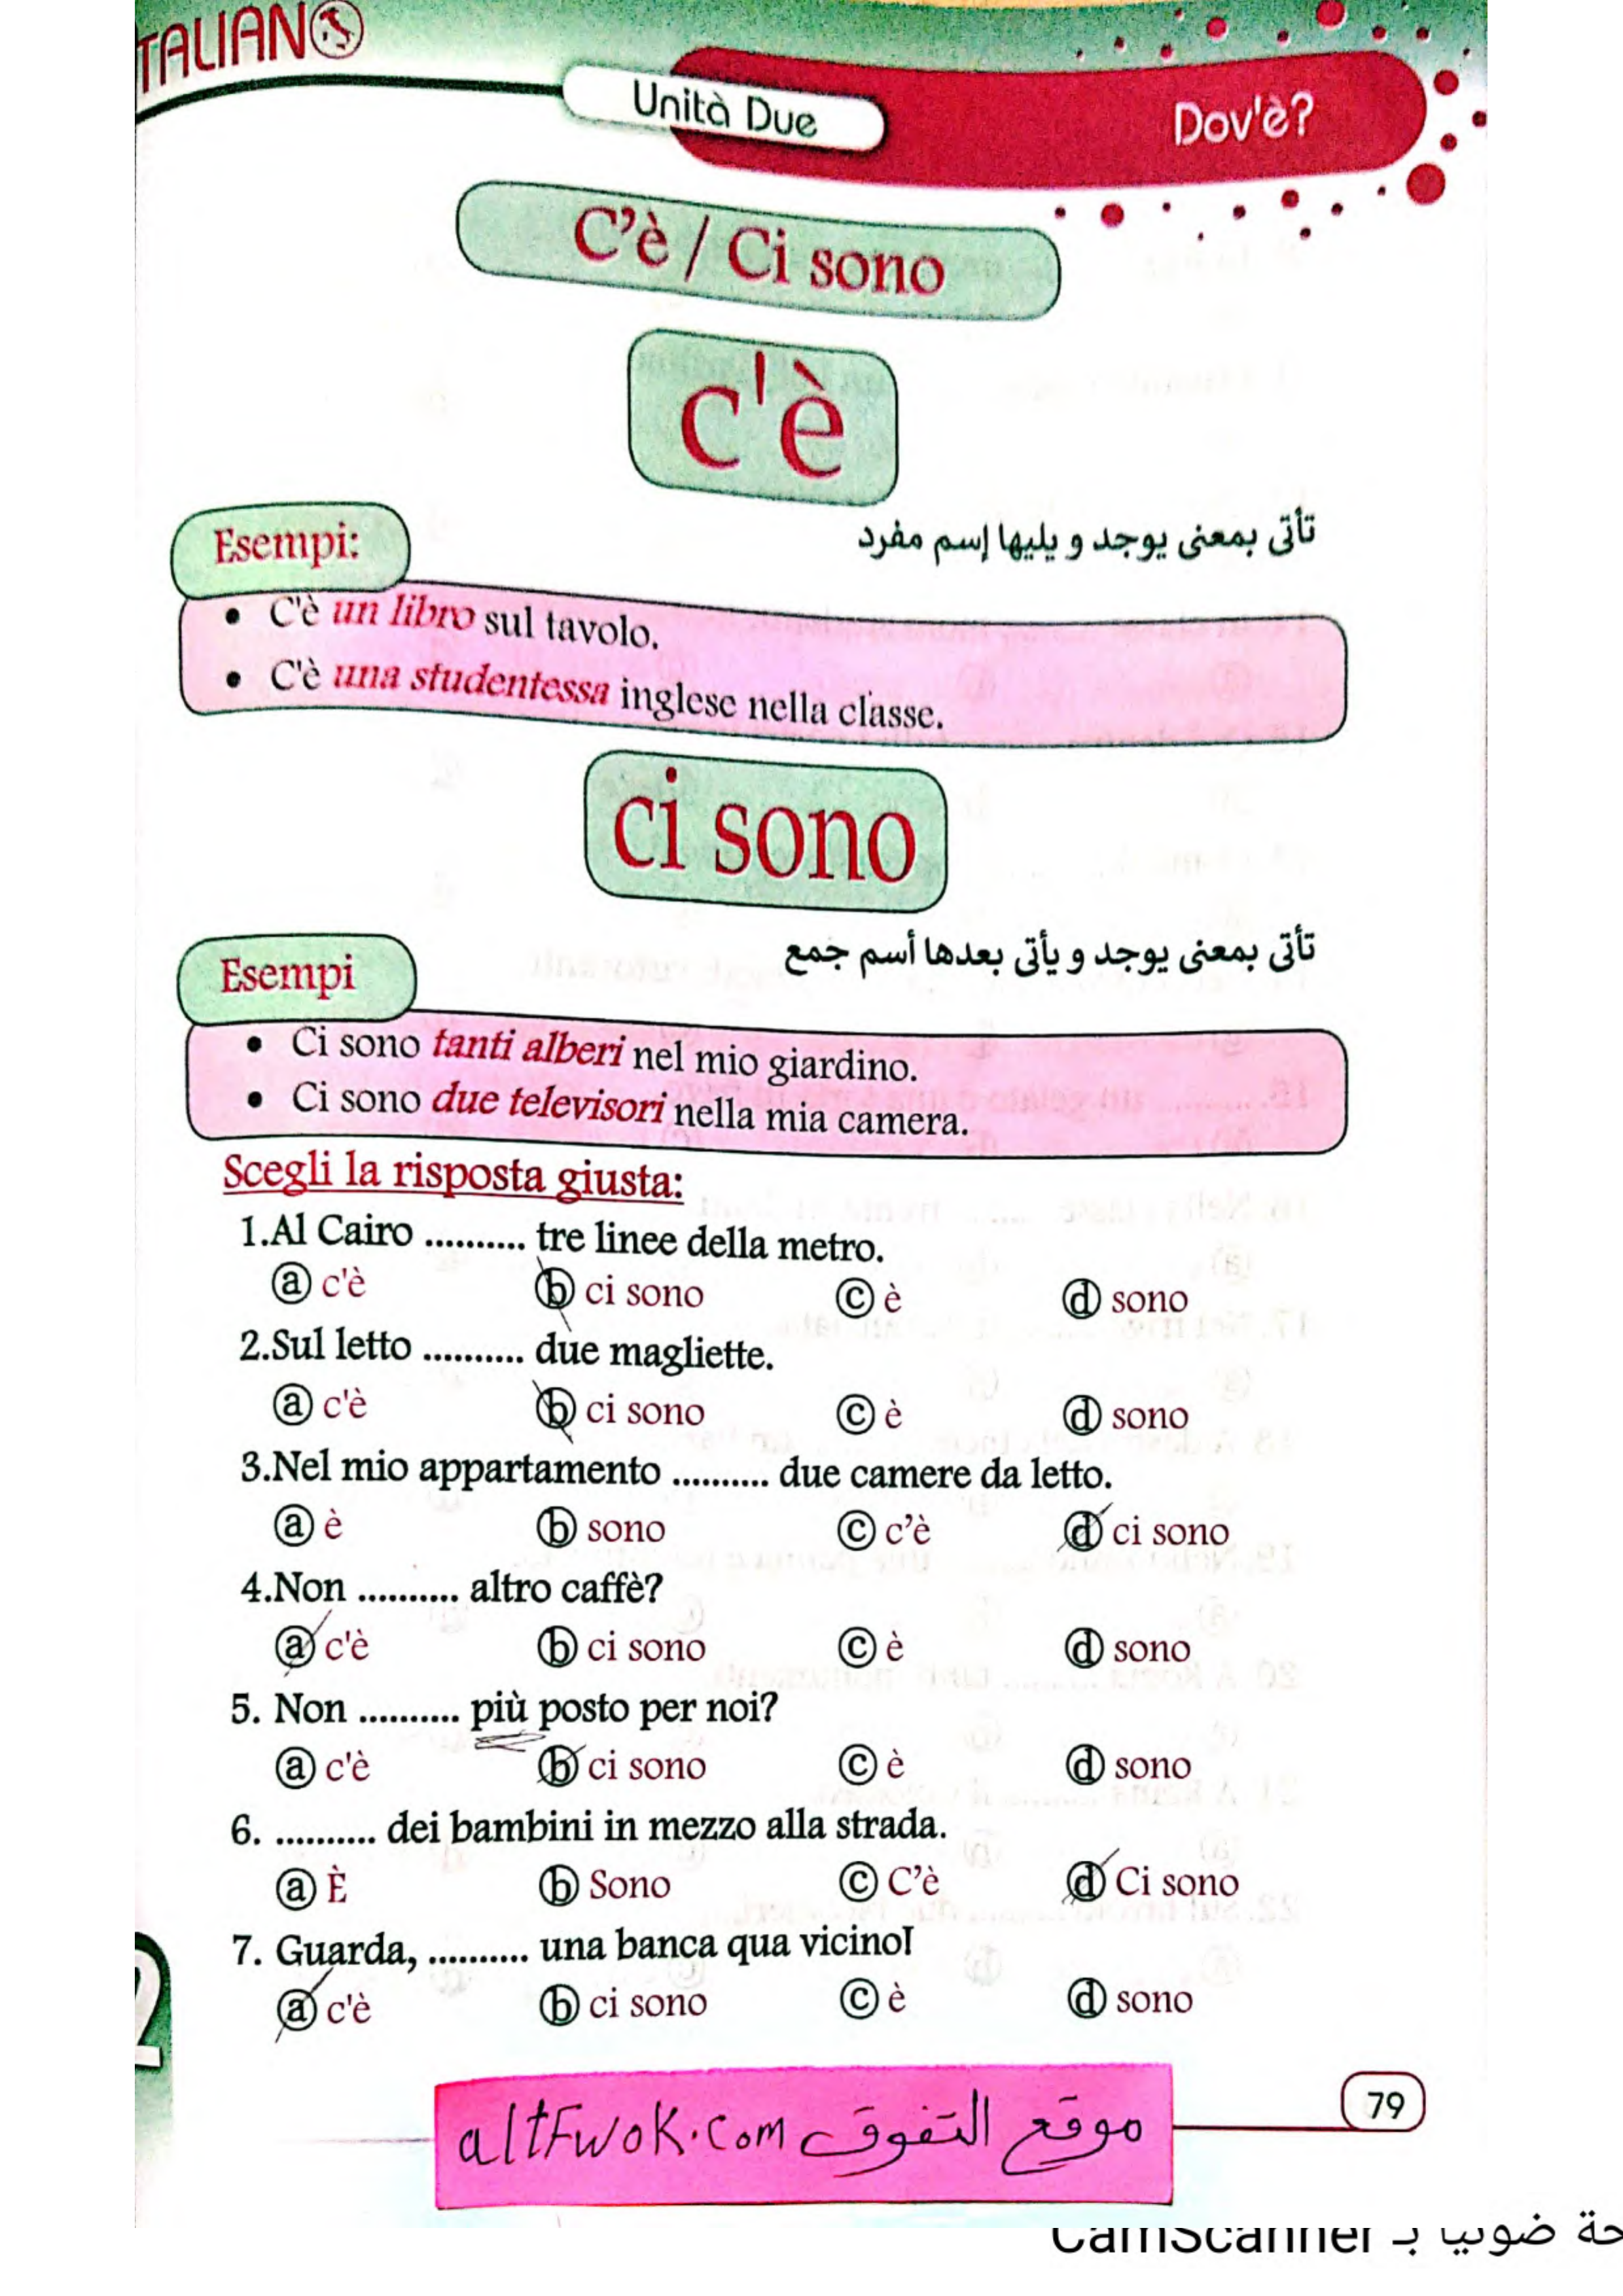 ITALIANO
Unità Due
Dov'è?
C'è / Ci sono
c'è
تأتى بمعنى يوجد و يليها إسم مفرد
Esempi:
• C'è un libro sul tavolo.
• C'è una studentessa inglese nella classe.
ci sono
تأتى بمعنى يوجد و يأتى بعدها أسم جمع
Esempi
• Ci sono tanti alberi nel mio giardino.
• Ci sono due televisori nella mia camera.
Scegli la risposta giusta:
1.Al Cairo .......... tre linee della metro.
ⓐ c'è ⓑ ci sono ⓒ è ⓓ sono
2.Sul letto .......... due magliette.
ⓐ c'è ⓑ ci sono ⓒ è ⓓ sono
3.Nel mio appartamento .......... due camere da letto.
ⓐ è ⓑ sono ⓒ c'è ⓓ ci sono
4.Non .......... altro caffè?
ⓐ c'è ⓑ ci sono ⓒ è ⓓ sono
5. Non .......... più posto per noi?
ⓐ c'è ⓑ ci sono ⓒ è ⓓ sono
6. .......... dei bambini in mezzo alla strada.
ⓐ È ⓑ Sono ⓒ C'è ⓓ Ci sono
7. Guarda, .......... una banca qua vicino!
ⓐ c'è ⓑ ci sono ⓒ è ⓓ sono
altFwok.com موقع التفوق
79
ضوئيا بـ CamScanner